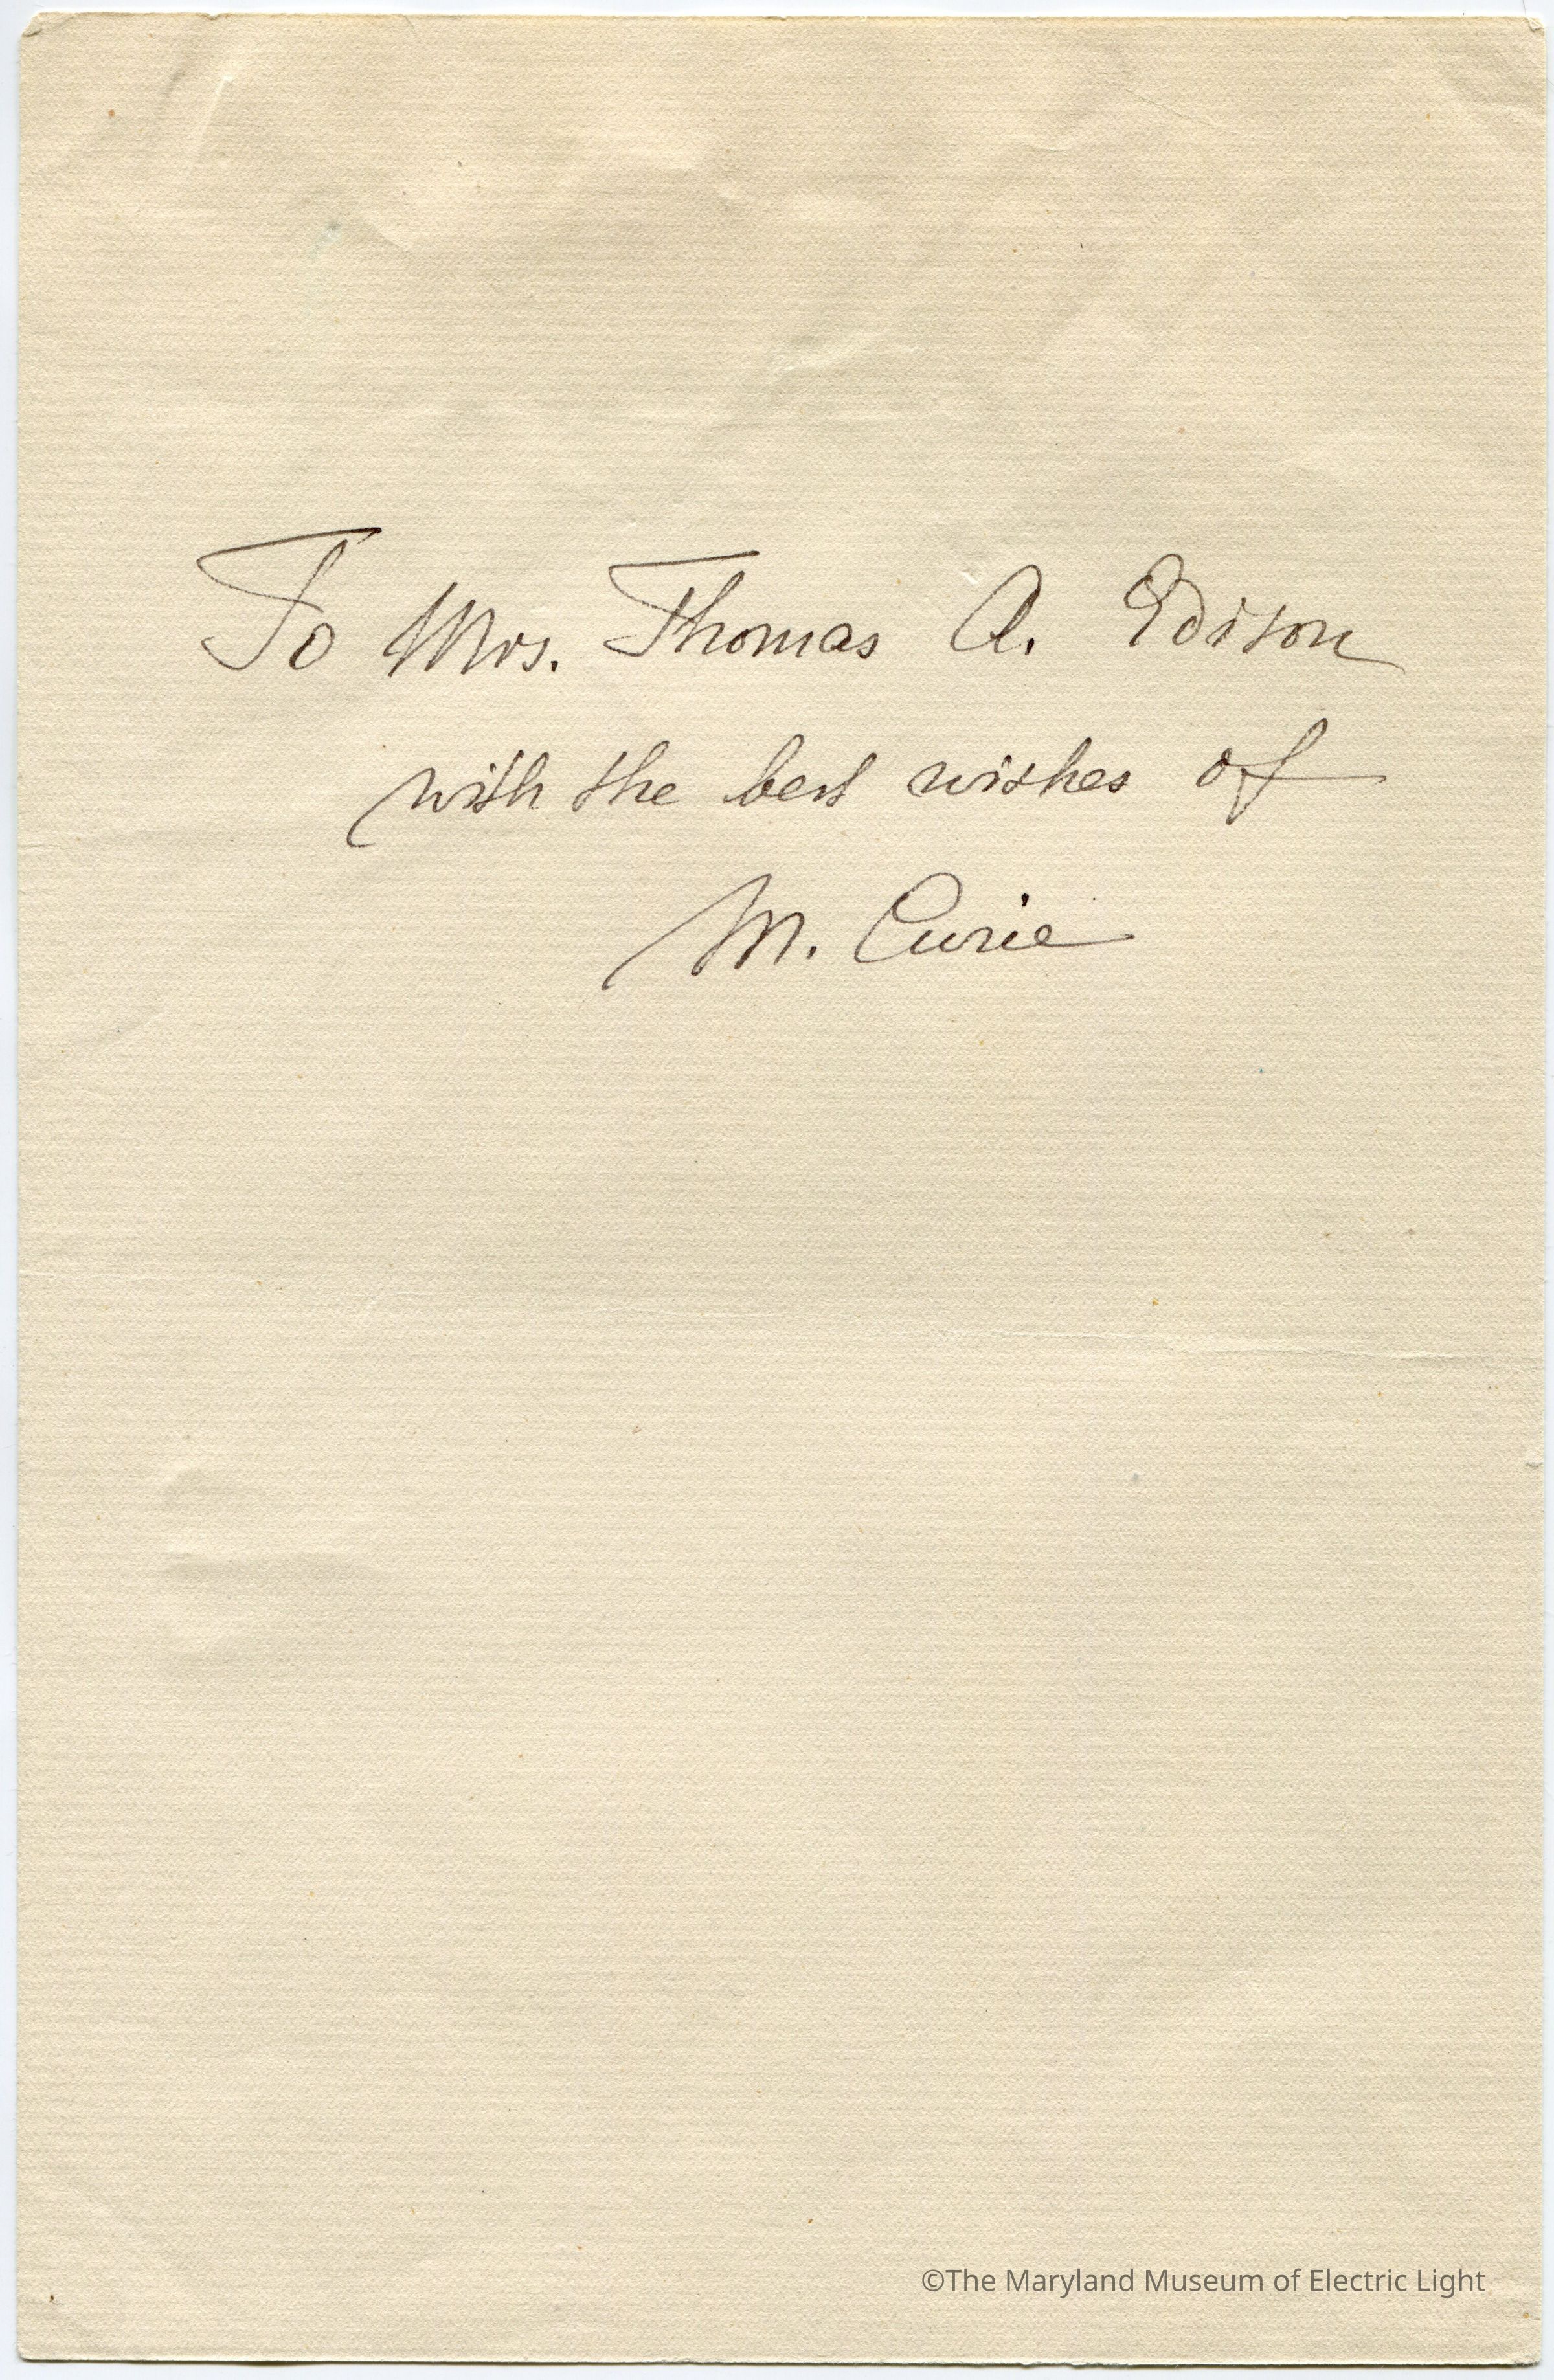 To Mrs. Thomas A. Edison
with the best wishes of
M. Curie
©The Maryland Museum of Electric Light